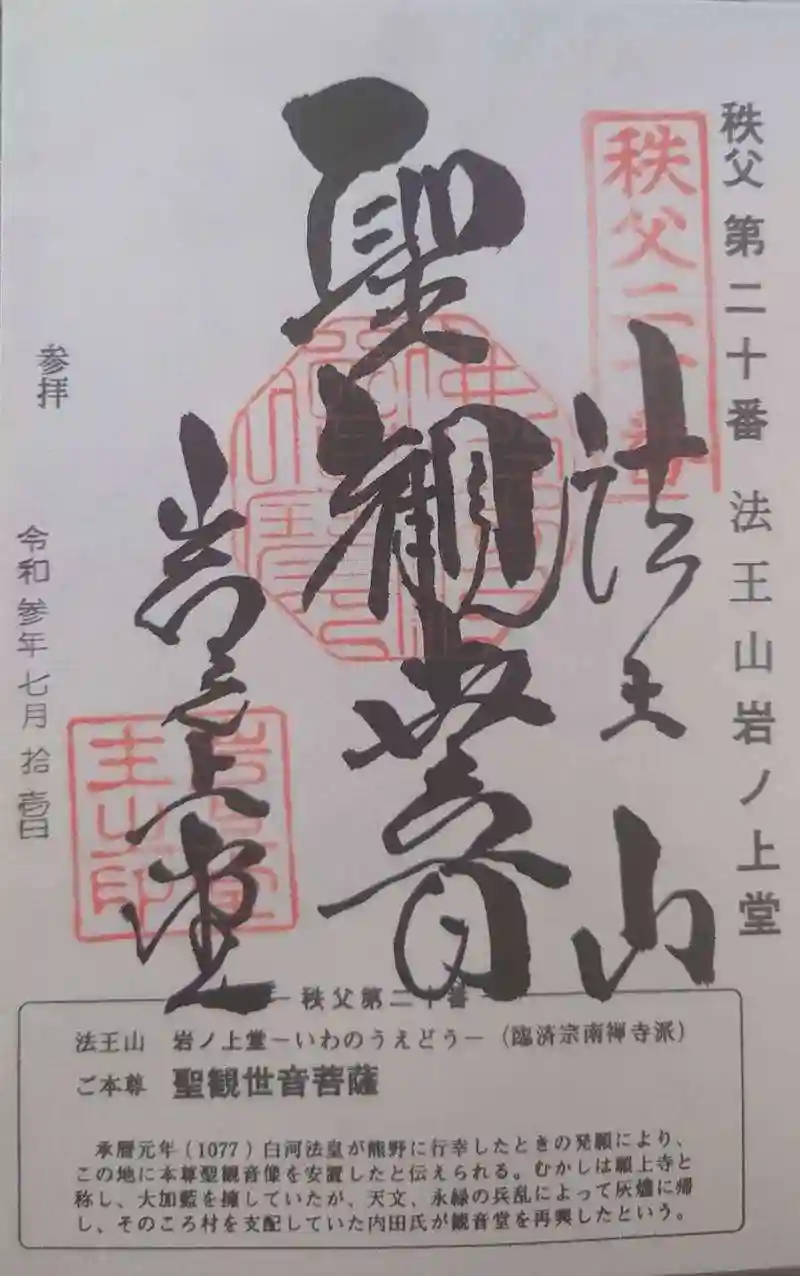 秩父 第二十番 法王山岩ノ上堂
秩父二十番
法王山
聖観世音
岩之上堂
参拝
令和参年七月拾壱日
秩父第二十番
法王山 岩ノ上堂－いわのうえどう－（臨済宗南禅寺派）
ご本尊 聖観世音菩薩
承暦元年（1077）白河法皇が熊野に行幸したときの発願により、
この地に本尊聖観音像を安置したと伝えられる。むかしは願上寺と
称し、大加藍を擁していたが、天文、永緑の兵乱によって灰燼に帰
し、そのころ村を支配していた内田氏が観音堂を再興したという。